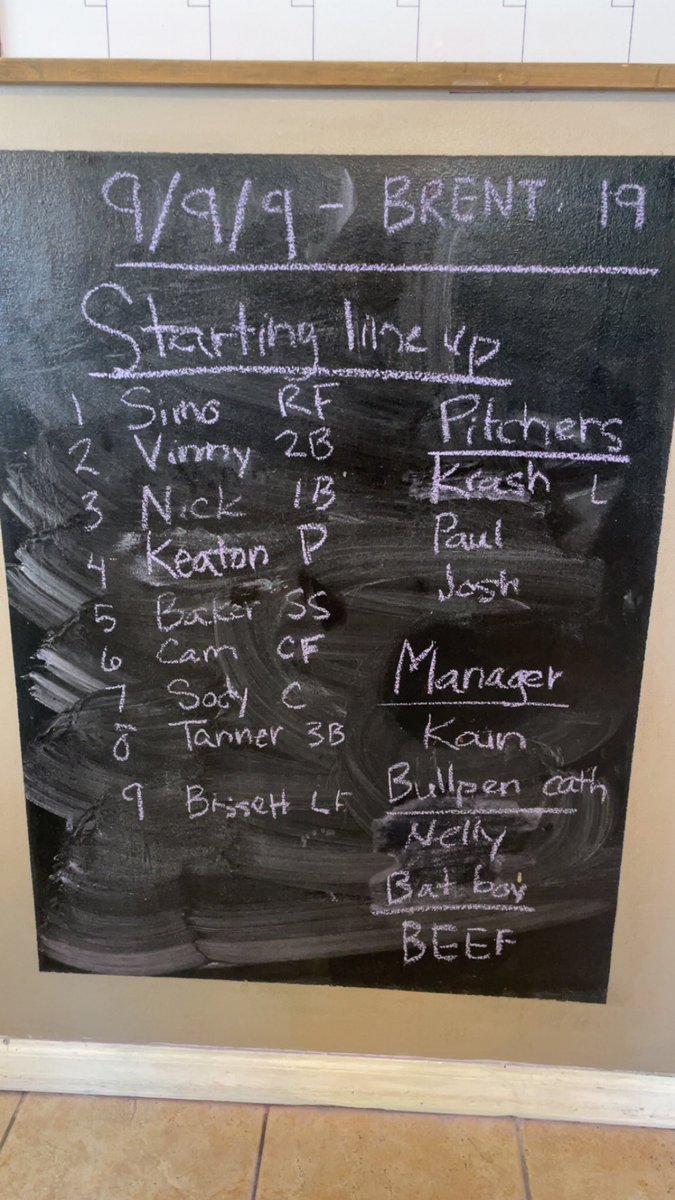 9/9/9 -> BRENT 19
Starting line up
1 Simo RF
2 Vinny 2B
3 Nick 1B
4 Keaton P
5 Baker SS
6 Cam CF
7 Sody C
8 Tanner 3B
9 Bissett LF
Pitchers
Krash L
Paul
Josh
Manager
Kain
Bullpen cath
Nelly
Bat boy
BEEF